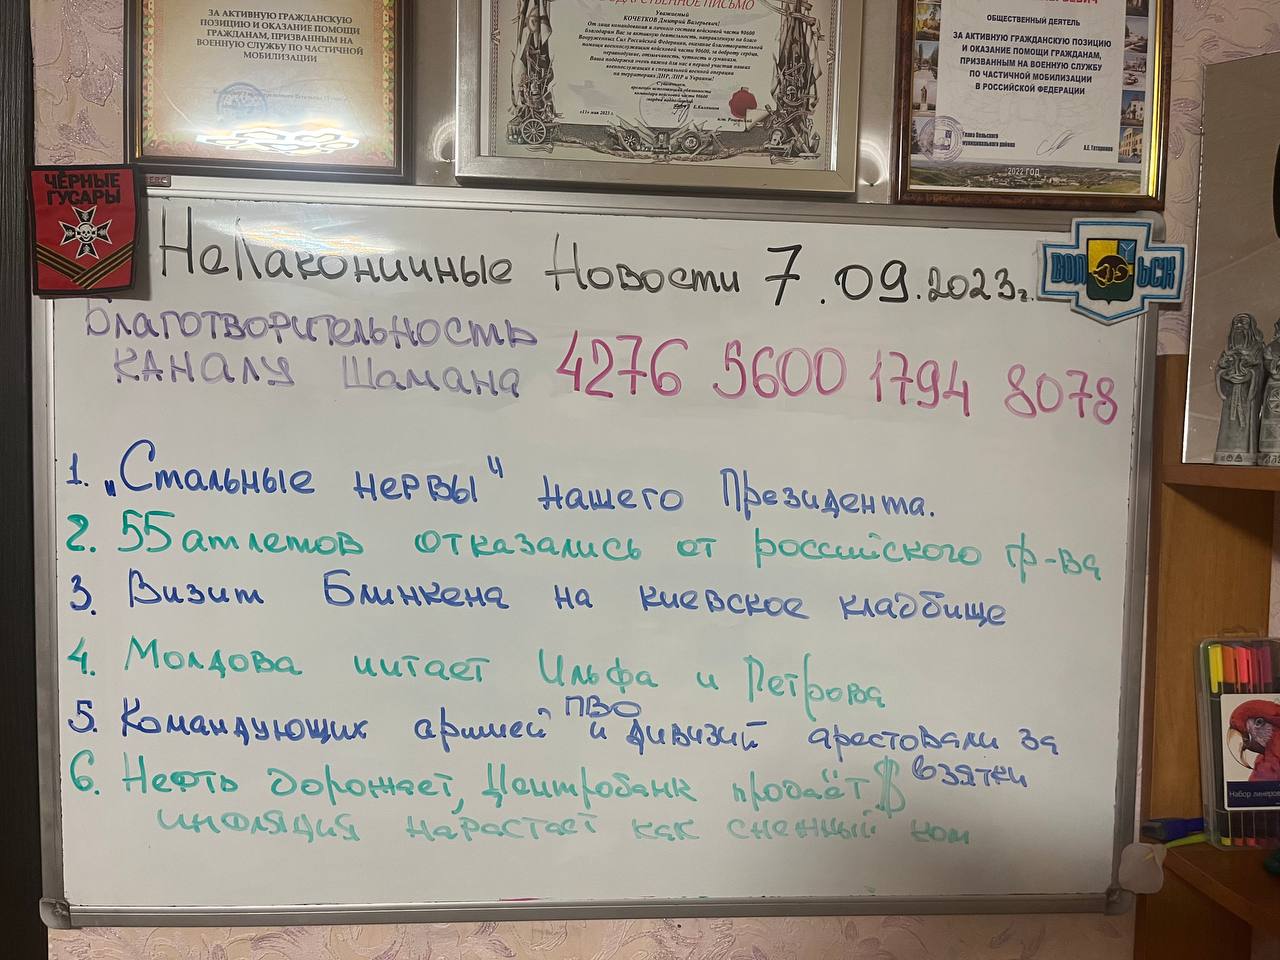 ЗА АКТИВНУЮ ГРАЖДАНСКУЮ
ПОЗИЦИЮ И ОКАЗАНИЕ ПОМОЩИ
ГРАЖДАНАМ, ПРИЗВАННЫМ НА
ВОЕННУЮ СЛУЖБУ ПО ЧАСТИЧНОЙ
МОБИЛИЗАЦИИ
Уважаемый
КОЧЕТКОВ Дмитрий Валерьевич!
От лица командования и личного состава войсковой части 90600
на территориях ДНР, ЛНР и Украины!
«11» мая 2023 г.
ОБЩЕСТВЕННЫЙ ДЕЯТЕЛЬ
ЗА АКТИВНУЮ ГРАЖДАНСКУЮ ПОЗИЦИЮ
И ОКАЗАНИЕ ПОМОЩИ ГРАЖДАНАМ,
ПРИЗВАННЫМ НА ВОЕННУЮ СЛУЖБУ
ПО ЧАСТИЧНОЙ МОБИЛИЗАЦИИ
В РОССИЙСКОЙ ФЕДЕРАЦИИ
Глава Вольского
муниципального района
А.Е.Татаринов
2022 ГОД
ЧЁРНЫЕ
ГУСАРЫ
НеЛаконичные Новости 7.09.2023г.
ВОЛЬСК
Благотворительность
КАНАЛУ Шамана 4276 5600 1794 8078
1. „Стальные нервы" нашего Президента.
2. 55 атлетов отказались от российского гр-ва
3. Визит Блинкена на киевское кладбище
4. Молдова читает Ильфа и Петрова
5. Командующих армией и дивизий ПВО арестовали за
взятки
6. Нефть дорожает, Центробанк продаёт $
инфляция нарастает как снежный ком
Набор линеров